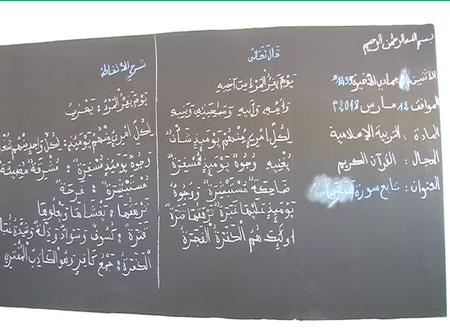 بسم الله الرحمن الرحيم
الاثنين جمادى الآخرة 1439
الموافق مارس 2018 م
المادة : التربية الإسلامية
المجال : القرآن الكريم
العنوان : تابع سورة
قال تعالى
يَوْمَ يَفِرُّ الْمَرْءُ مِنْ أَخِيهِ
وَأُمِّهِ وَأَبِيهِ وَصَاحِبَتِهِ وَبَنِيهِ
لِكُلِّ امْرِئٍ مِنْهُمْ يَوْمَئِذٍ شَأْنٌ
يُغْنِيهِ وُجُوهٌ يَوْمَئِذٍ مُسْفِرَةٌ
ضَاحِكَةٌ مُسْتَبْشِرَةٌ وَوُجُوهٌ
يَوْمَئِذٍ عَلَيْهَا غَبَرَةٌ تَرْهَقُهَا قَتَرَةٌ
أُولَئِكَ هُمُ الْكَفَرَةُ الْفَجَرَةُ
شرح الألفاظ
يَوْمَ يَفِرُّ الْمَرْءُ : يَهْرُبُ
لِكُلِّ امْرِئٍ مِنْهُمْ يَوْمَئِذٍ : لِكُلِّ وَاحِدٍ مِنْهُمْ
وُجُوهٌ يَوْمَئِذٍ مُسْفِرَةٌ : مُشْرِقَةٌ مُضِيئَةٌ
مُسْتَبْشِرَةٌ : فَرِحَةٌ
تَرْهَقُهَا : تَغْشَاهَا وَتَعْلُوهَا
قَتَرَةٌ : كُسُوفٌ وَسَوَادٌ وَذِلَّةٌ
الْكَفَرَةُ : جَمْعُ كَافِرٍ وَهُوَ الْكَاذِبُ الْمُفْتَرِي